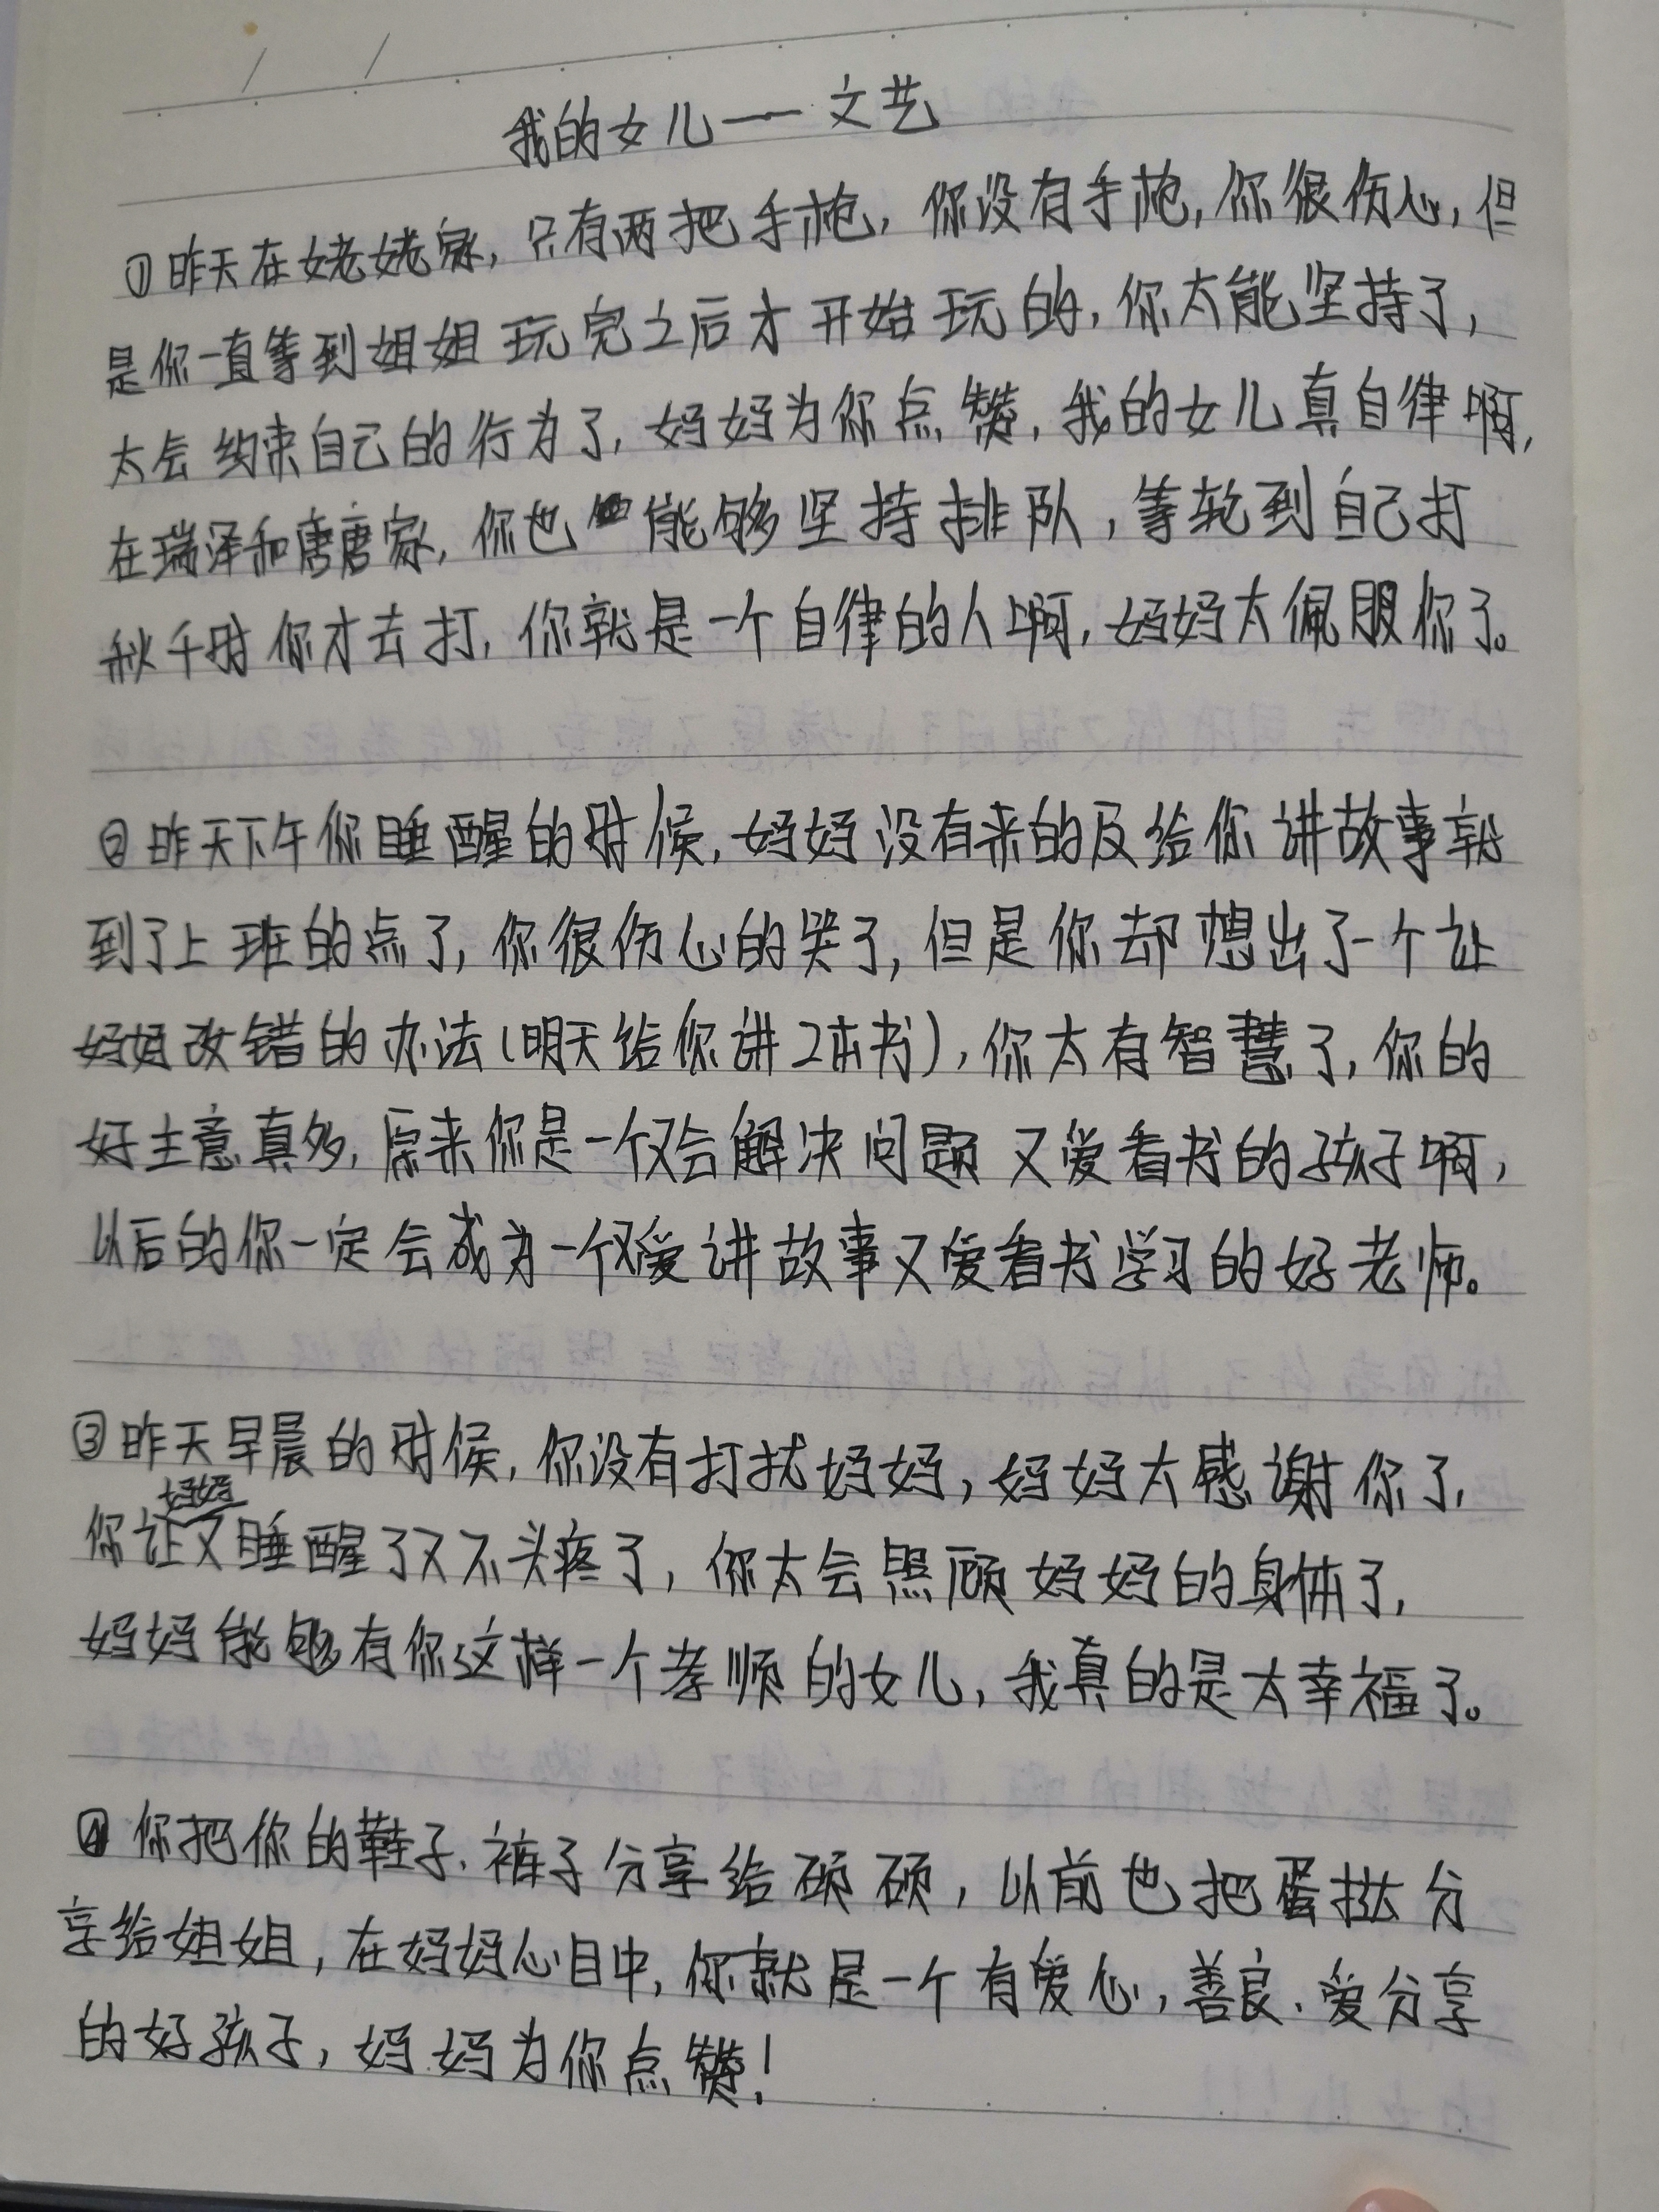 我的女儿——文艺
①昨天在姥姥家,只有两把手枪,你没有手枪,你很伤心,但
是你一直等到姐姐玩完之后才开始玩的,你太能坚持了,
太会约束自己的行为了,妈妈为你点赞,我的女儿真自律啊,
在瑞泽和唐唐家,你也能够坚持排队,等轮到自己打
秋千时你才去打,你就是一个自律的人啊,妈妈太佩服你了。
②昨天下午你睡醒的时候,妈妈没有来的及给你讲故事就
到了上班的点了,你很伤心的哭了,但是你却想出了一个让
妈妈改错的办法(明天给你讲2本书),你太有智慧了,你的
好主意真多,原来你是一个又会解决问题又爱看书的孩子啊,
以后的你一定会成为一个又爱讲故事又爱看书学习的好老师。
③昨天早晨的时候,你没有打扰妈妈,妈妈太感谢你了,
你让妈妈又睡醒了又不头疼了,你太会照顾妈妈的身体了,
妈妈能够有你这样一个孝顺的女儿,我真的是太幸福了。
④你把你的鞋子、裤子分享给硕硕,以前也把蛋挞分
享给姐姐,在妈妈心目中,你就是一个有爱心,善良、爱分享
的好孩子,妈妈为你点赞!